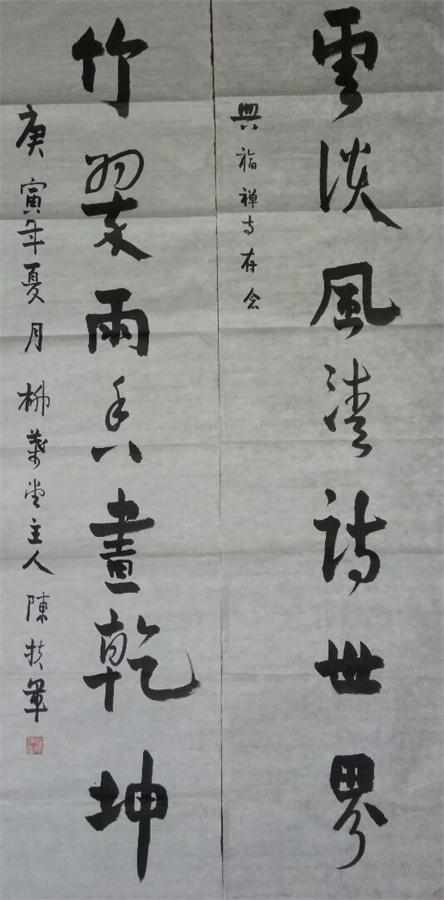 雲淡風清詩世界
興福禅寺存念
竹翠雨香畫乾坤
庚寅年夏月 柳葉堂主人 陳扶軍